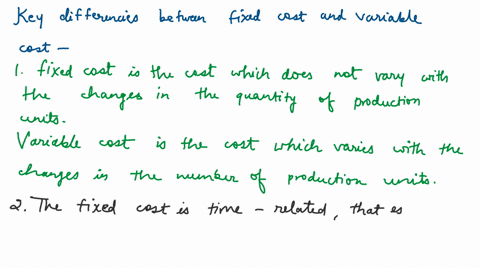 Key differencies between fixed cost and variable
cost —
1. fixed cost is the cost which does not vary with
the changes in the quantity of production
units.
Variable cost is the cost which varies with the
changes in the number of production units.
2. The fixed cost is time - related, that es